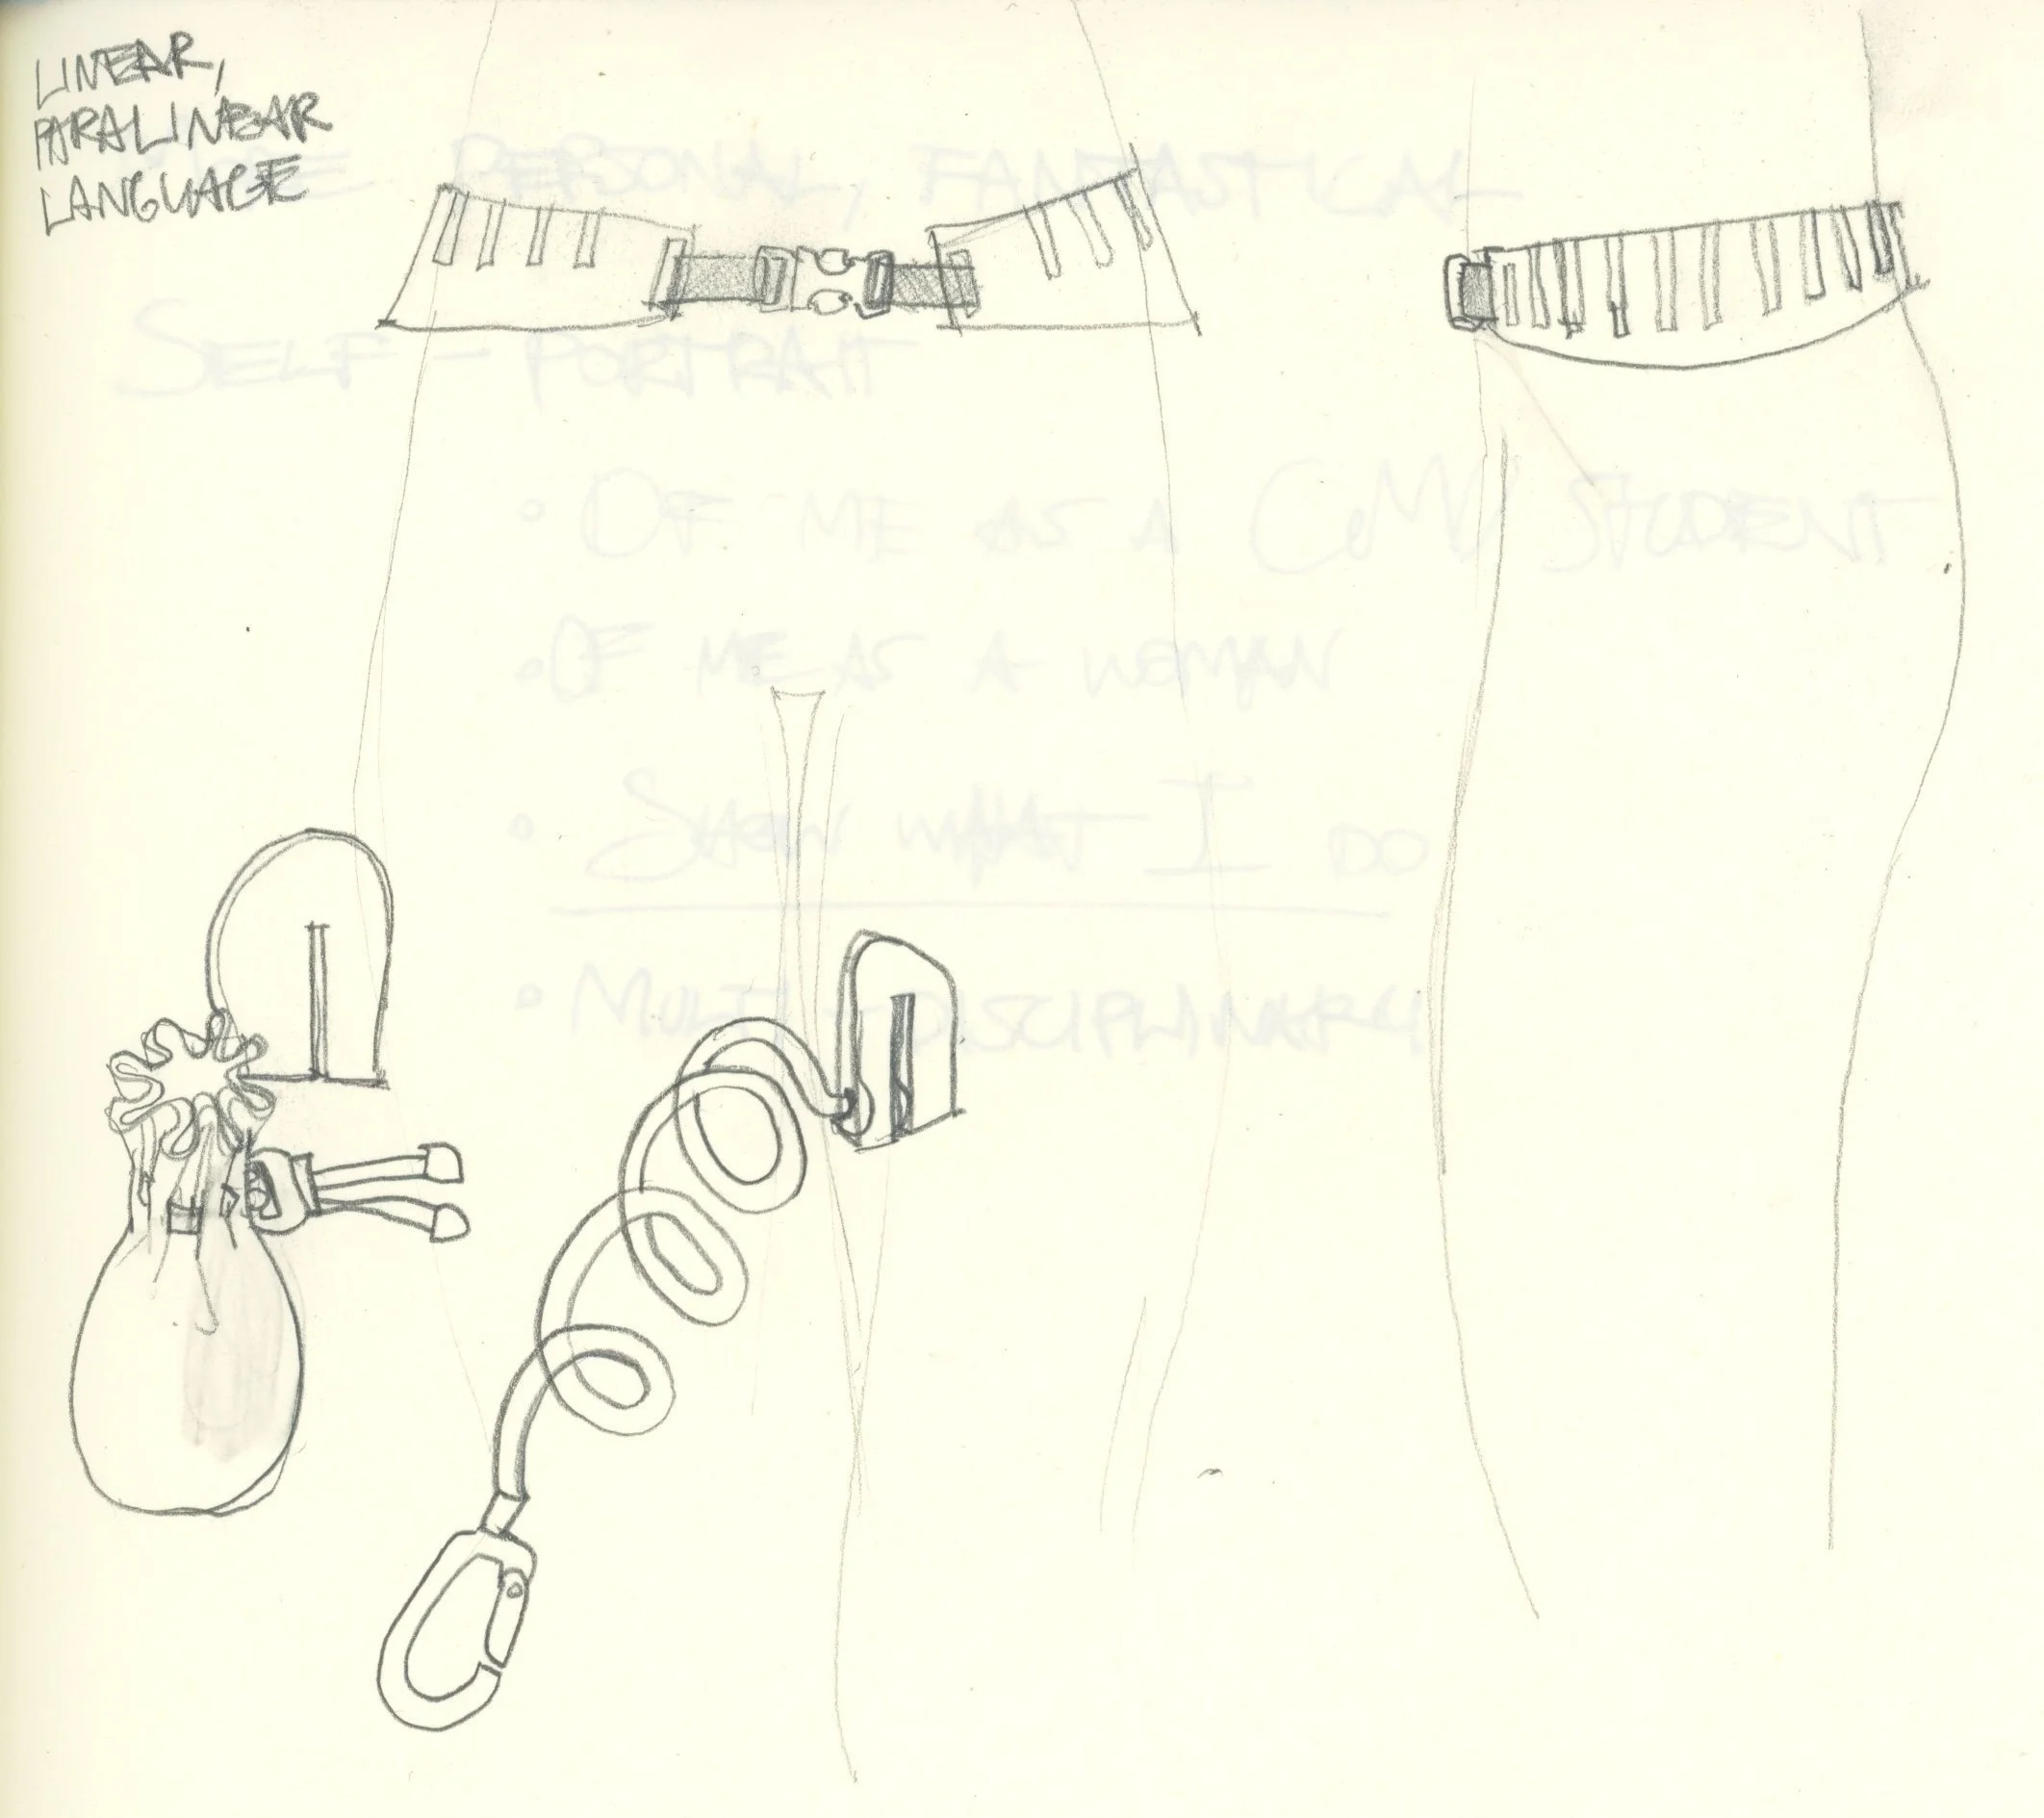 LINEAR,
PARALINEAR
LANGUAGE
PERSONAL, FANTASTICAL
SELF-PORTRAIT
• OF ME AS A CMU STUDENT
• OF ME AS A WOMAN
• SHOW WHAT I DO
• MULTI-DISCIPLINARY